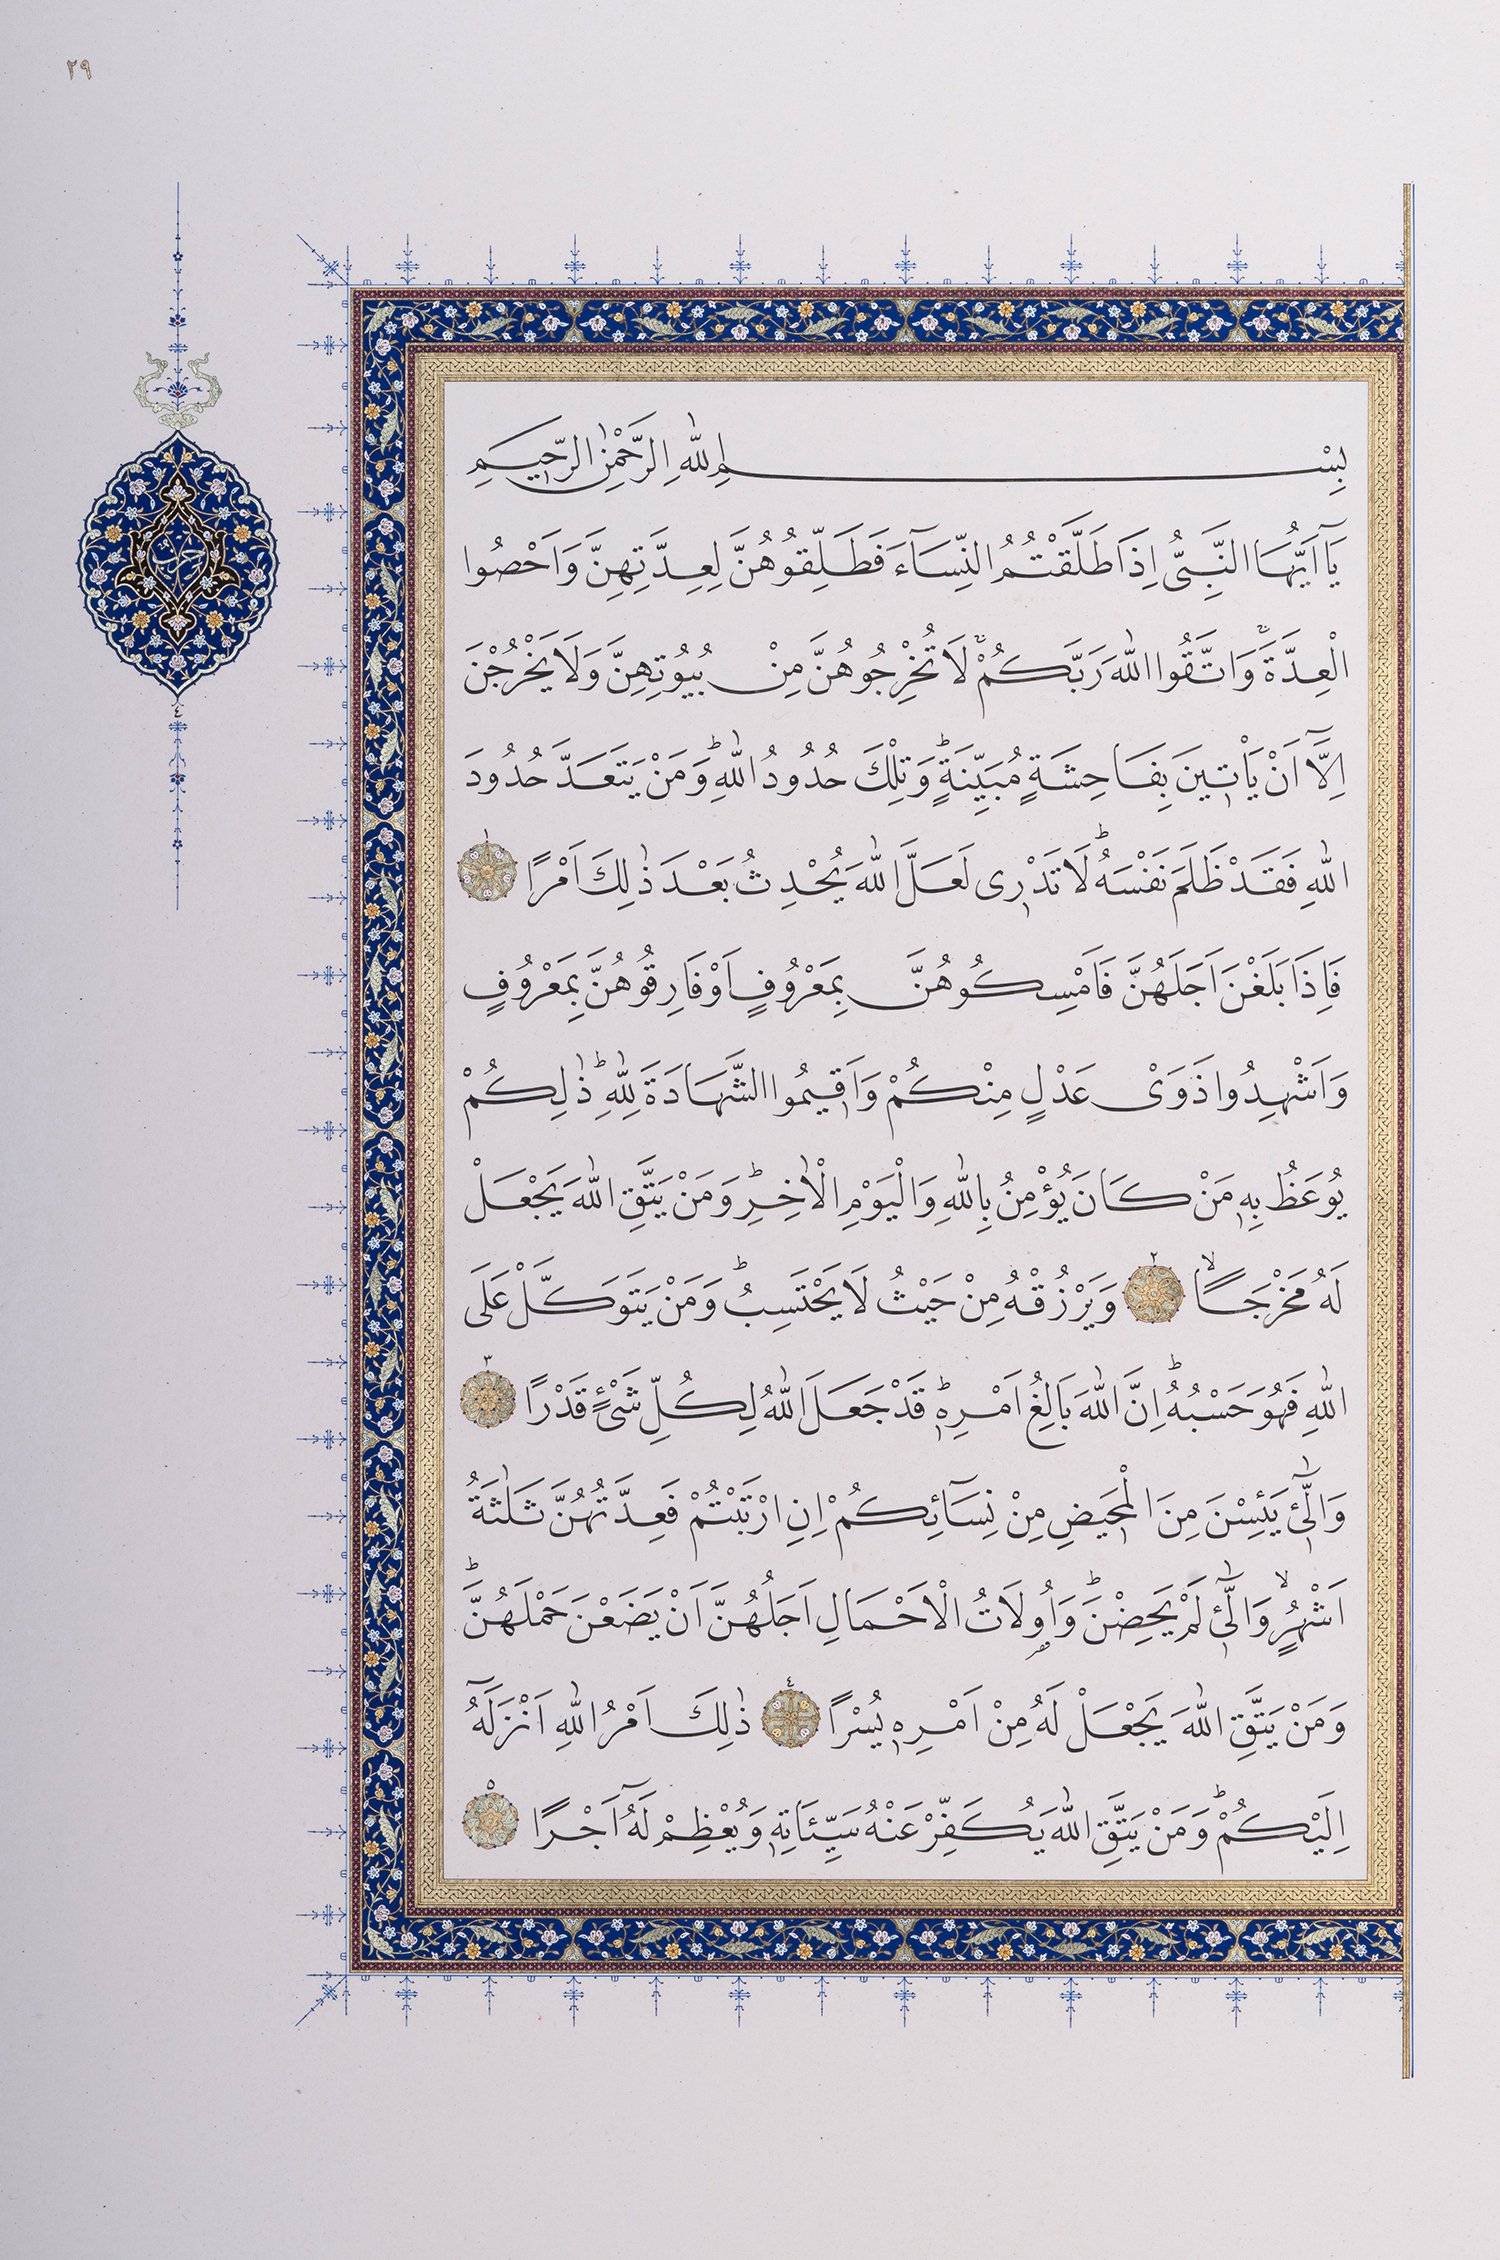 ٢٩
بِسْمِ اللّٰهِ الرَّحْمٰنِ الرَّحٖيمِ
يَٓا اَيُّهَا النَّبِىُّ اِذَا طَلَّقْتُمُ النِّسَٓاءَ فَطَلِّقُوهُنَّ لِعِدَّتِهِنَّ وَاَحْصُوا
الْعِدَّةَۚ وَاتَّقُوا اللّٰهَ رَبَّكُمْۚ لَا تُخْرِجُوهُنَّ مِنْ بُيُوتِهِنَّ وَلَا يَخْرُجْنَ
اِلَّٓا اَنْ يَاْتٖينَ بِفَاحِشَةٍ مُبَيِّنَةٍؕ وَتِلْكَ حُدُودُ اللّٰهِؕ وَمَنْ يَتَعَدَّ حُدُودَ
اللّٰهِ فَقَدْ ظَلَمَ نَفْسَهُؕ لَا تَدْرٖى لَعَلَّ اللّٰهَ يُحْدِثُ بَعْدَ ذٰلِكَ اَمْرًا ١
فَاِذَا بَلَغْنَ اَجَلَهُنَّ فَاَمْسِكُوهُنَّ بِمَعْرُوفٍ اَوْ فَارِقُوهُنَّ بِمَعْرُوفٍ
وَاَشْهِدُوا ذَوَىْ عَدْلٍ مِنْكُمْ وَاَقٖيمُوا الشَّهَادَةَ لِلّٰهِؕ ذٰلِكُمْ
يُوعَظُ بِهٖ مَنْ كَانَ يُؤْمِنُ بِاللّٰهِ وَالْيَوْمِ الْاٰخِرِؕ وَمَنْ يَتَّقِ اللّٰهَ يَجْعَلْ
لَهُ مَخْرَجًاۙ ٢ وَيَرْزُقْهُ مِنْ حَيْثُ لَا يَحْتَسِبُؕ وَمَنْ يَتَوَكَّلْ عَلَى
اللّٰهِ فَهُوَ حَسْبُهُؕ اِنَّ اللّٰهَ بَالِغُ اَمْرِهٖؕ قَدْ جَعَلَ اللّٰهُ لِكُلِّ شَىْءٍ قَدْرًا ٣
وَالّٰٓـٖٔى يَئِسْنَ مِنَ الْمَحٖيضِ مِنْ نِسَٓائِكُمْ اِنِ ارْتَبْتُمْ فَعِدَّتُهُنَّ ثَلٰثَةُ
اَشْهُرٍۙ وَالّٰٓـٖٔى لَمْ يَحِضْنَؕ وَاُولَاتُ الْاَحْمَالِ اَجَلُهُنَّ اَنْ يَضَعْنَ حَمْلَهُنَّؕ
وَمَنْ يَتَّقِ اللّٰهَ يَجْعَلْ لَهُ مِنْ اَمْرِهٖ يُسْرًا ٤ ذٰلِكَ اَمْرُ اللّٰهِ اَنْزَلَهُٓ
اِلَيْكُمْؕ وَمَنْ يَتَّقِ اللّٰهَ يُكَفِّرْ عَنْهُ سَيِّـَٔاتِهٖ وَيُعْظِمْ لَهُٓ اَجْرًا ٥
حزب
٤